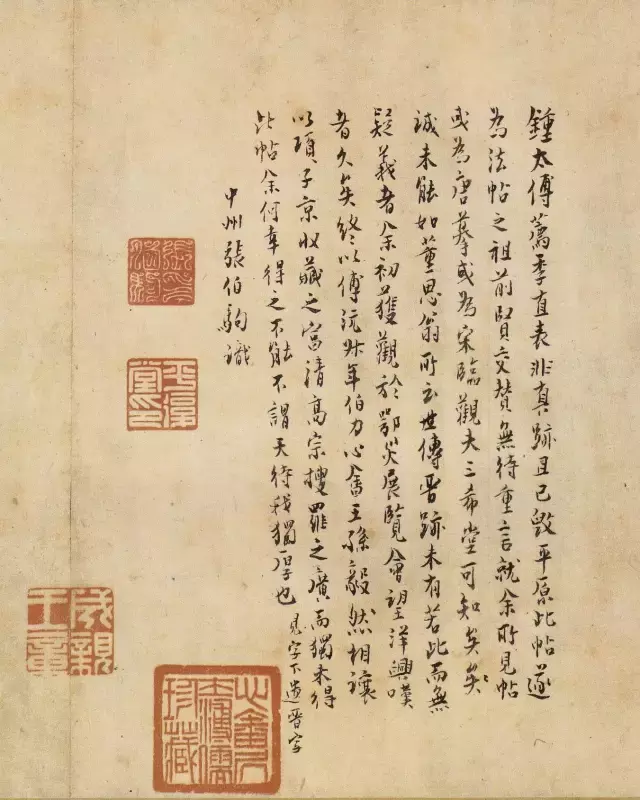 鍾太傅薦季直表非真跡且已毀平原此帖遂
為法帖之祖前賢交贊無待重言就余所見帖
或為唐摹或為宋臨觀夫三希堂可知矣矣
誠未能如董思翁所云世傳晉跡未有若此而無
疑義者余初獲觀於鄂災展覽會望洋興嘆
者久矣終以傅沅叔年伯力心畬王孫毅然相讓
以項子京收藏之富清高宗搜羅之廣而獨未得
此帖余何幸得之不能不謂天待我獨厚也 見字下遺晉字
中州張伯駒識
平復堂印
成親王章
溥儒珍藏